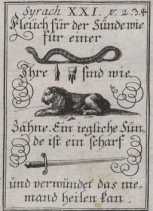 Syrach XXI. v. 2.3.4
Fleuch für der Sünde wie
für einer
Ihre sind wie
Zähne. Ein jegliche Sün,
de ist ein scharf
und verwündet das nie,
mand heilen kan.